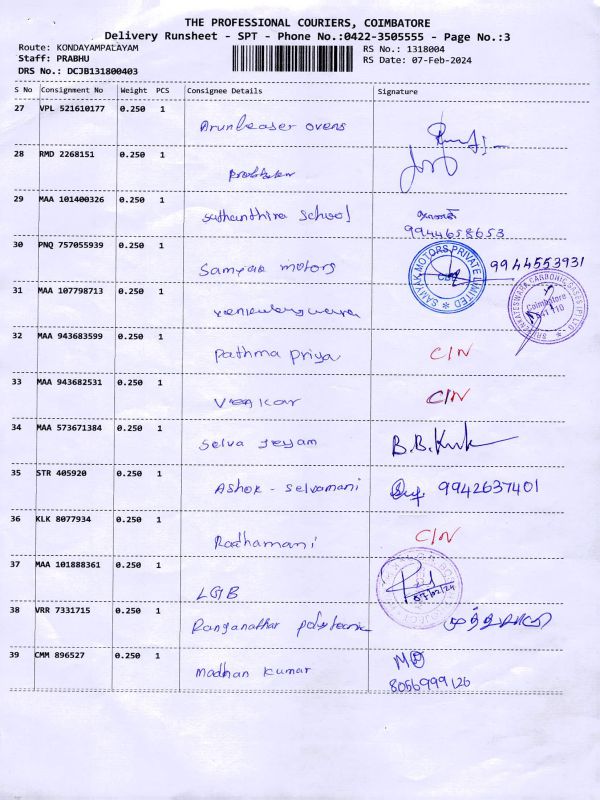 THE PROFESSIONAL COURIERS, COIMBATORE
Delivery Runsheet - SPT - Phone No.:0422-3505555 - Page No.:3
Route: KONDAYAMPALAYAM
RS No.: 1318004
Staff: PRABHU
RS Date: 07-Feb-2024
DRS No.: DCJB131800403
S No Consignment No Weight PCS Consignee Details Signature
27 VPL 521610177 0.250 1
ovens
28 RMD 2268151 0.250 1
29 MAA 101400326 0.250 1
Suthanthira School
9944658653
30 PNQ 757055939 0.250 1
Samyak motors
SAMYAK MOTORS PRIVATE LIMITED
CBE
9944553931
31 MAA 107798713 0.250 1
SRI VENKATESWARA CARBONIC GASES (P) LTD
Coimbatore
641 110
32 MAA 943683599 0.250 1
Pathma Priya C/N
33 MAA 943682531 0.250 1
C/N
34 MAA 573671384 0.250 1
Selva Jeyam
35 STR 405920 0.250 1
Ashok - Selvamani 9942637401
36 KLK 8077934 0.250 1
Radhamani C/N
37 MAA 101888361 0.250 1
LGB
07/02/24
38 VRR 7331715 0.250 1
Ranganathar polytecnic
39 CMM 896527 0.250 1
Madhan Kumar
8056999126